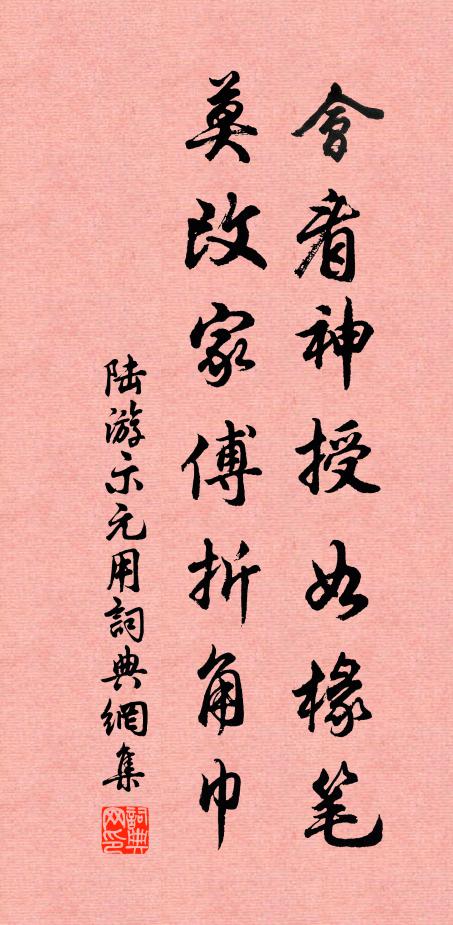 會看神授如椽笔
莫改家傅折角巾
陆游示元用詞典網集
詞典网印